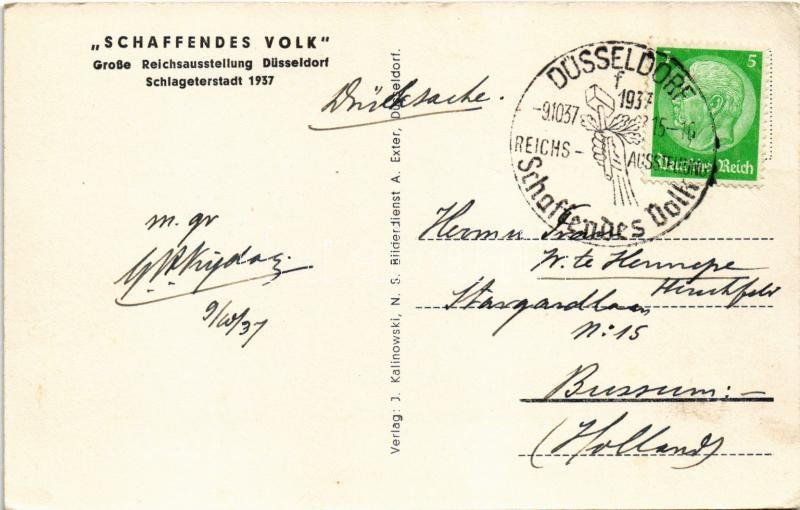 „SCHAFFENDES VOLK"
Große Reichsausstellung Düsseldorf
Schlageterstadt 1937
Drucksache.
m. gr
9/10/37
Verlag: J. Kalinowski, N. S. Bilderdienst A. Exter, Düsseldorf.
DÜSSELDORF
f
1937
-9.10.37
15-16
REICHS-
AUSSTELLUNG
Schaffendes Volk
5 5
Deutsches Reich
W. te Hennepe
Hirschfeld
Stargardlaan
No: 15
Bussum:-
(Holland)